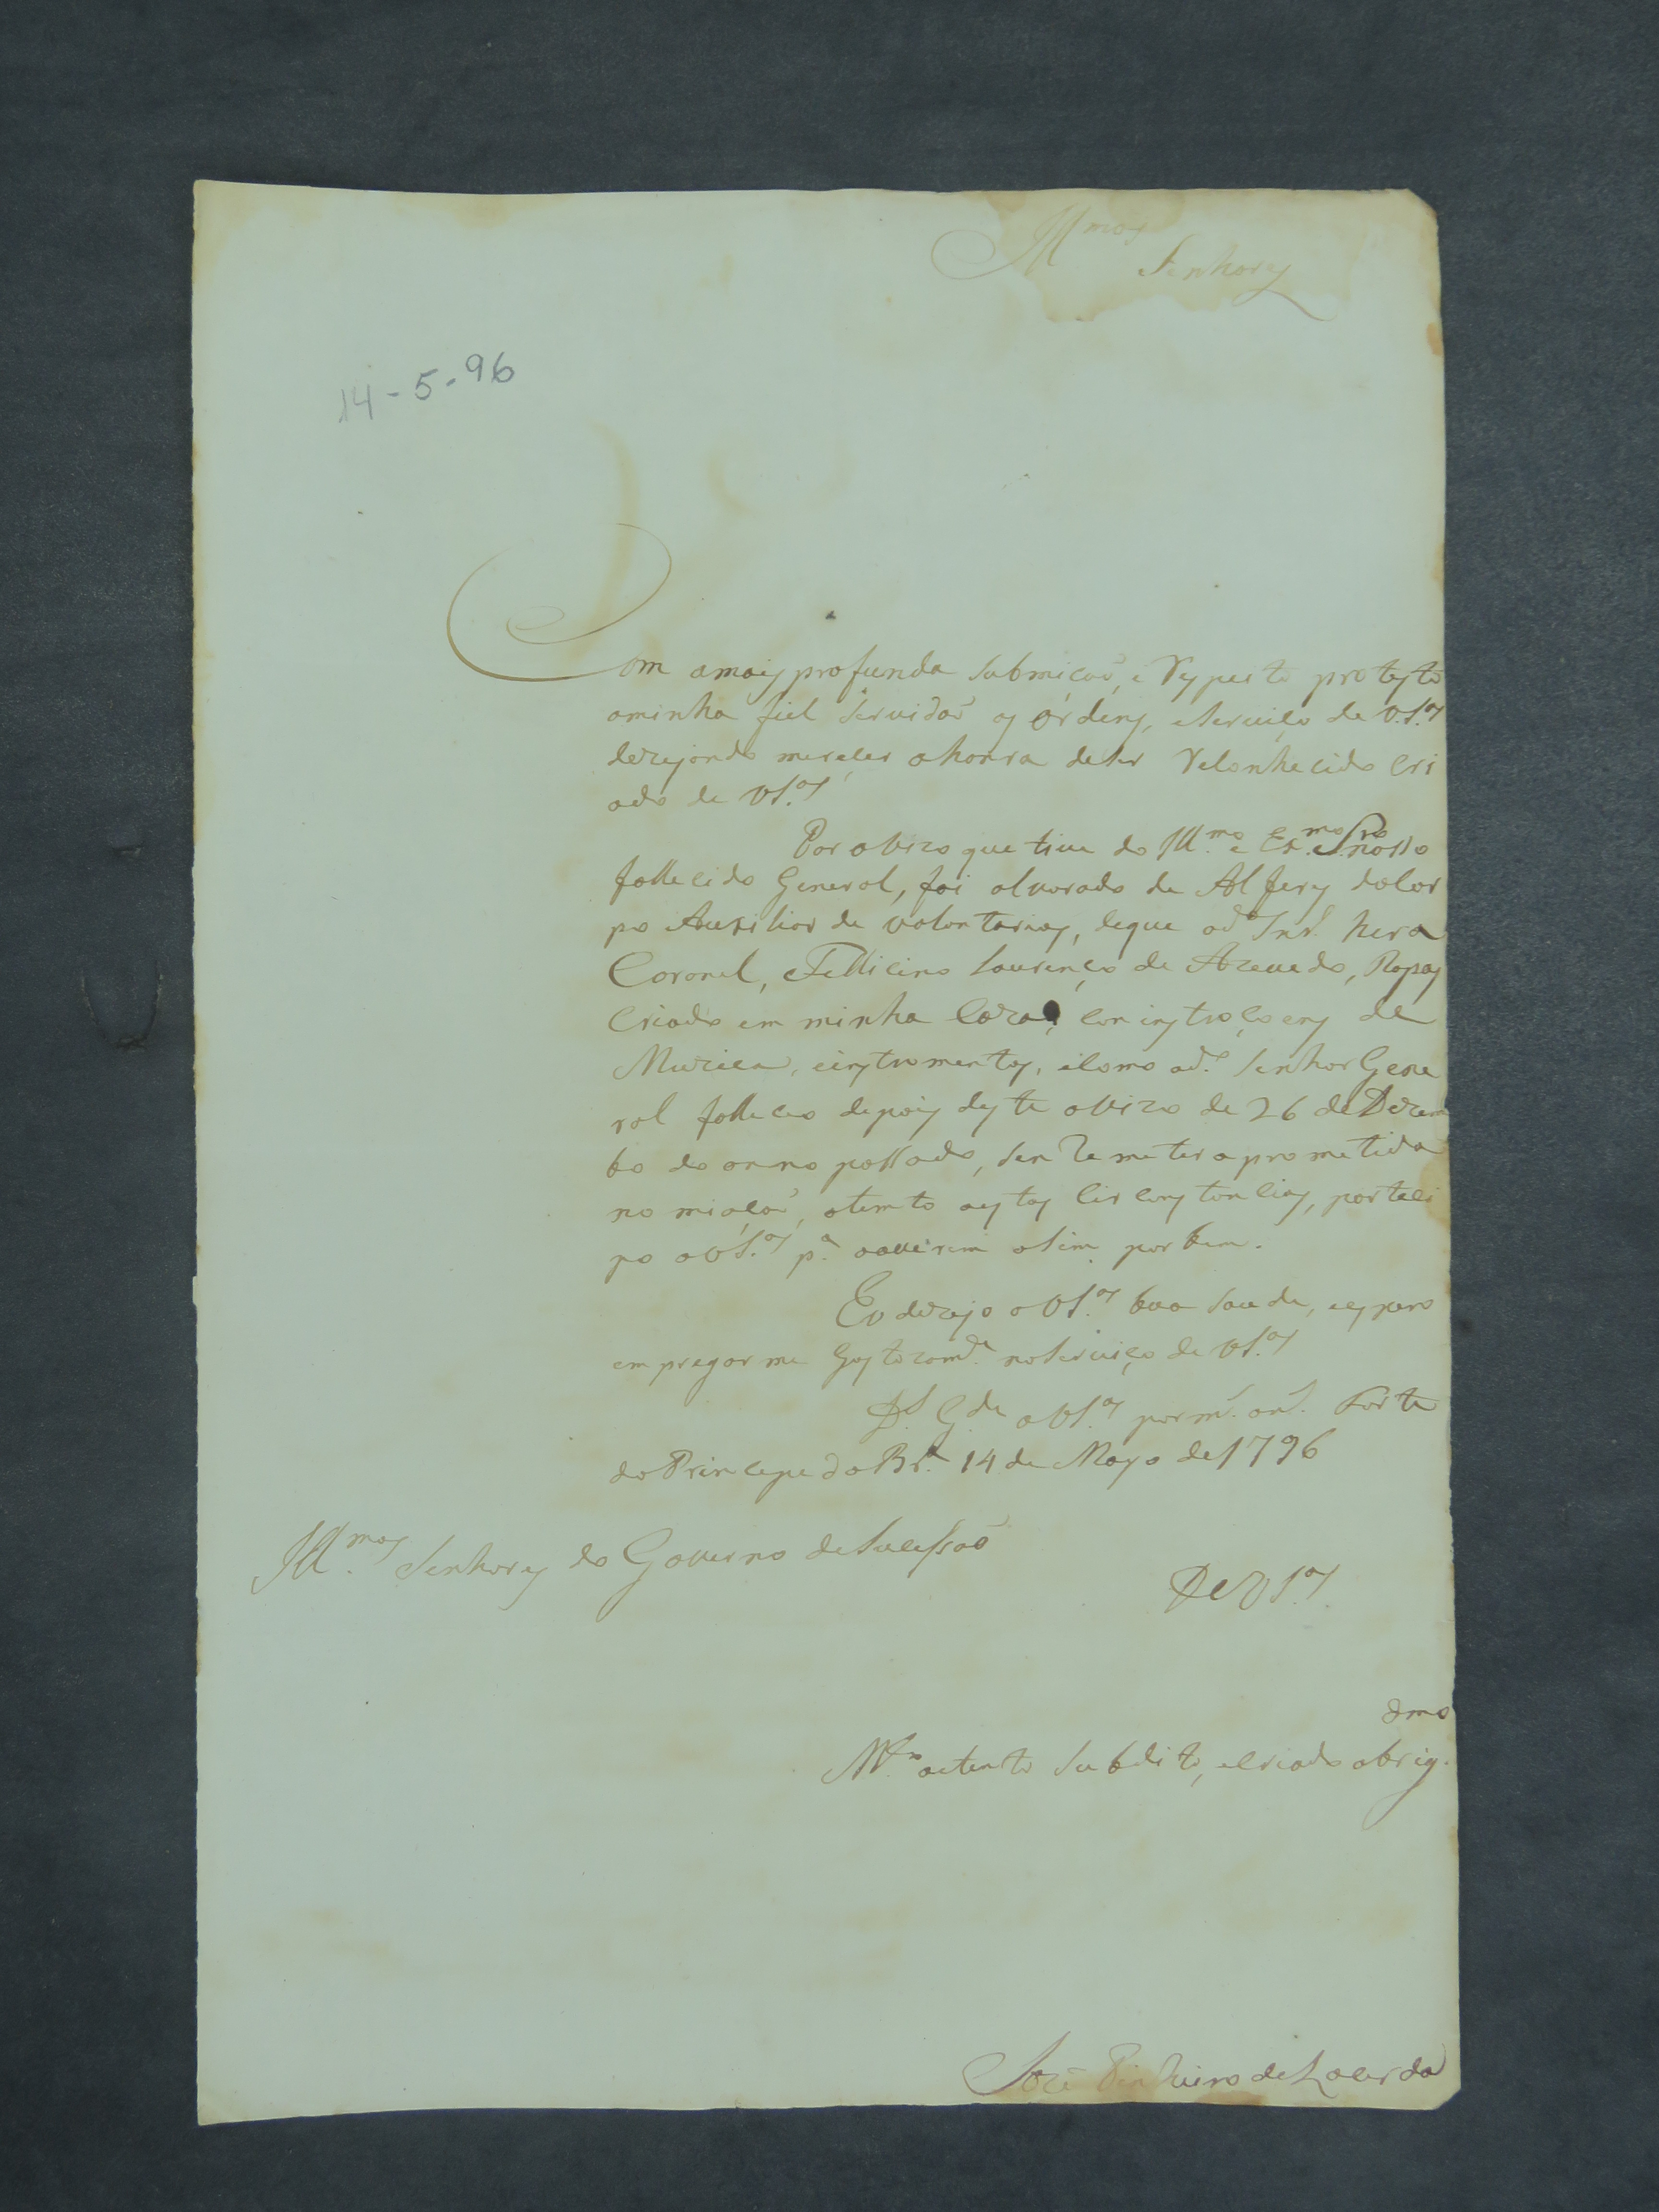 Ill.mos
Senhores
14-5-96
Com amais profunda submicaõ, e Respeito protesto
aminha fiel servidaõ as órdens, eserviço de V.S.as
dezejando mereçer ahonra deser Reconhecido cri
ado de VS.as
Por avizo que tive do Ill.mo e Ex.mo Snr nosso
fallecido General, foi alvorado de Alferes docor
po Auxiliar de volontarios, deque od.o Snr. hera
Coronel, Fellicino Lourenço de Azevedo, Rapas
criado em minha caza, con instroçoens de
Muzica, einstromentos, ecomo od.o Senhor Gene
ral falleceo depois deste avizo de 26 de Dezem
bo do anno passado, sen Remeter aprometida
nomiaçaõ, atento aestas circonstoncias, porteci
po aVS.as p.a oaverem asim por bem.
Eu dezejo aVS.as boa saude, eespero
empregar me Gostozam.te noServiço de VS.as
D.s G.de aVS.as porm.s an.s Forte
do Princepe da Br.a 14 de Mayo de 1796
Ill.mos Senhores do Governo deSucessaõ
De VS.as
M.to atento Subdito, ecriado obrig.dmo
Jozé Pinheiro de Lacerda